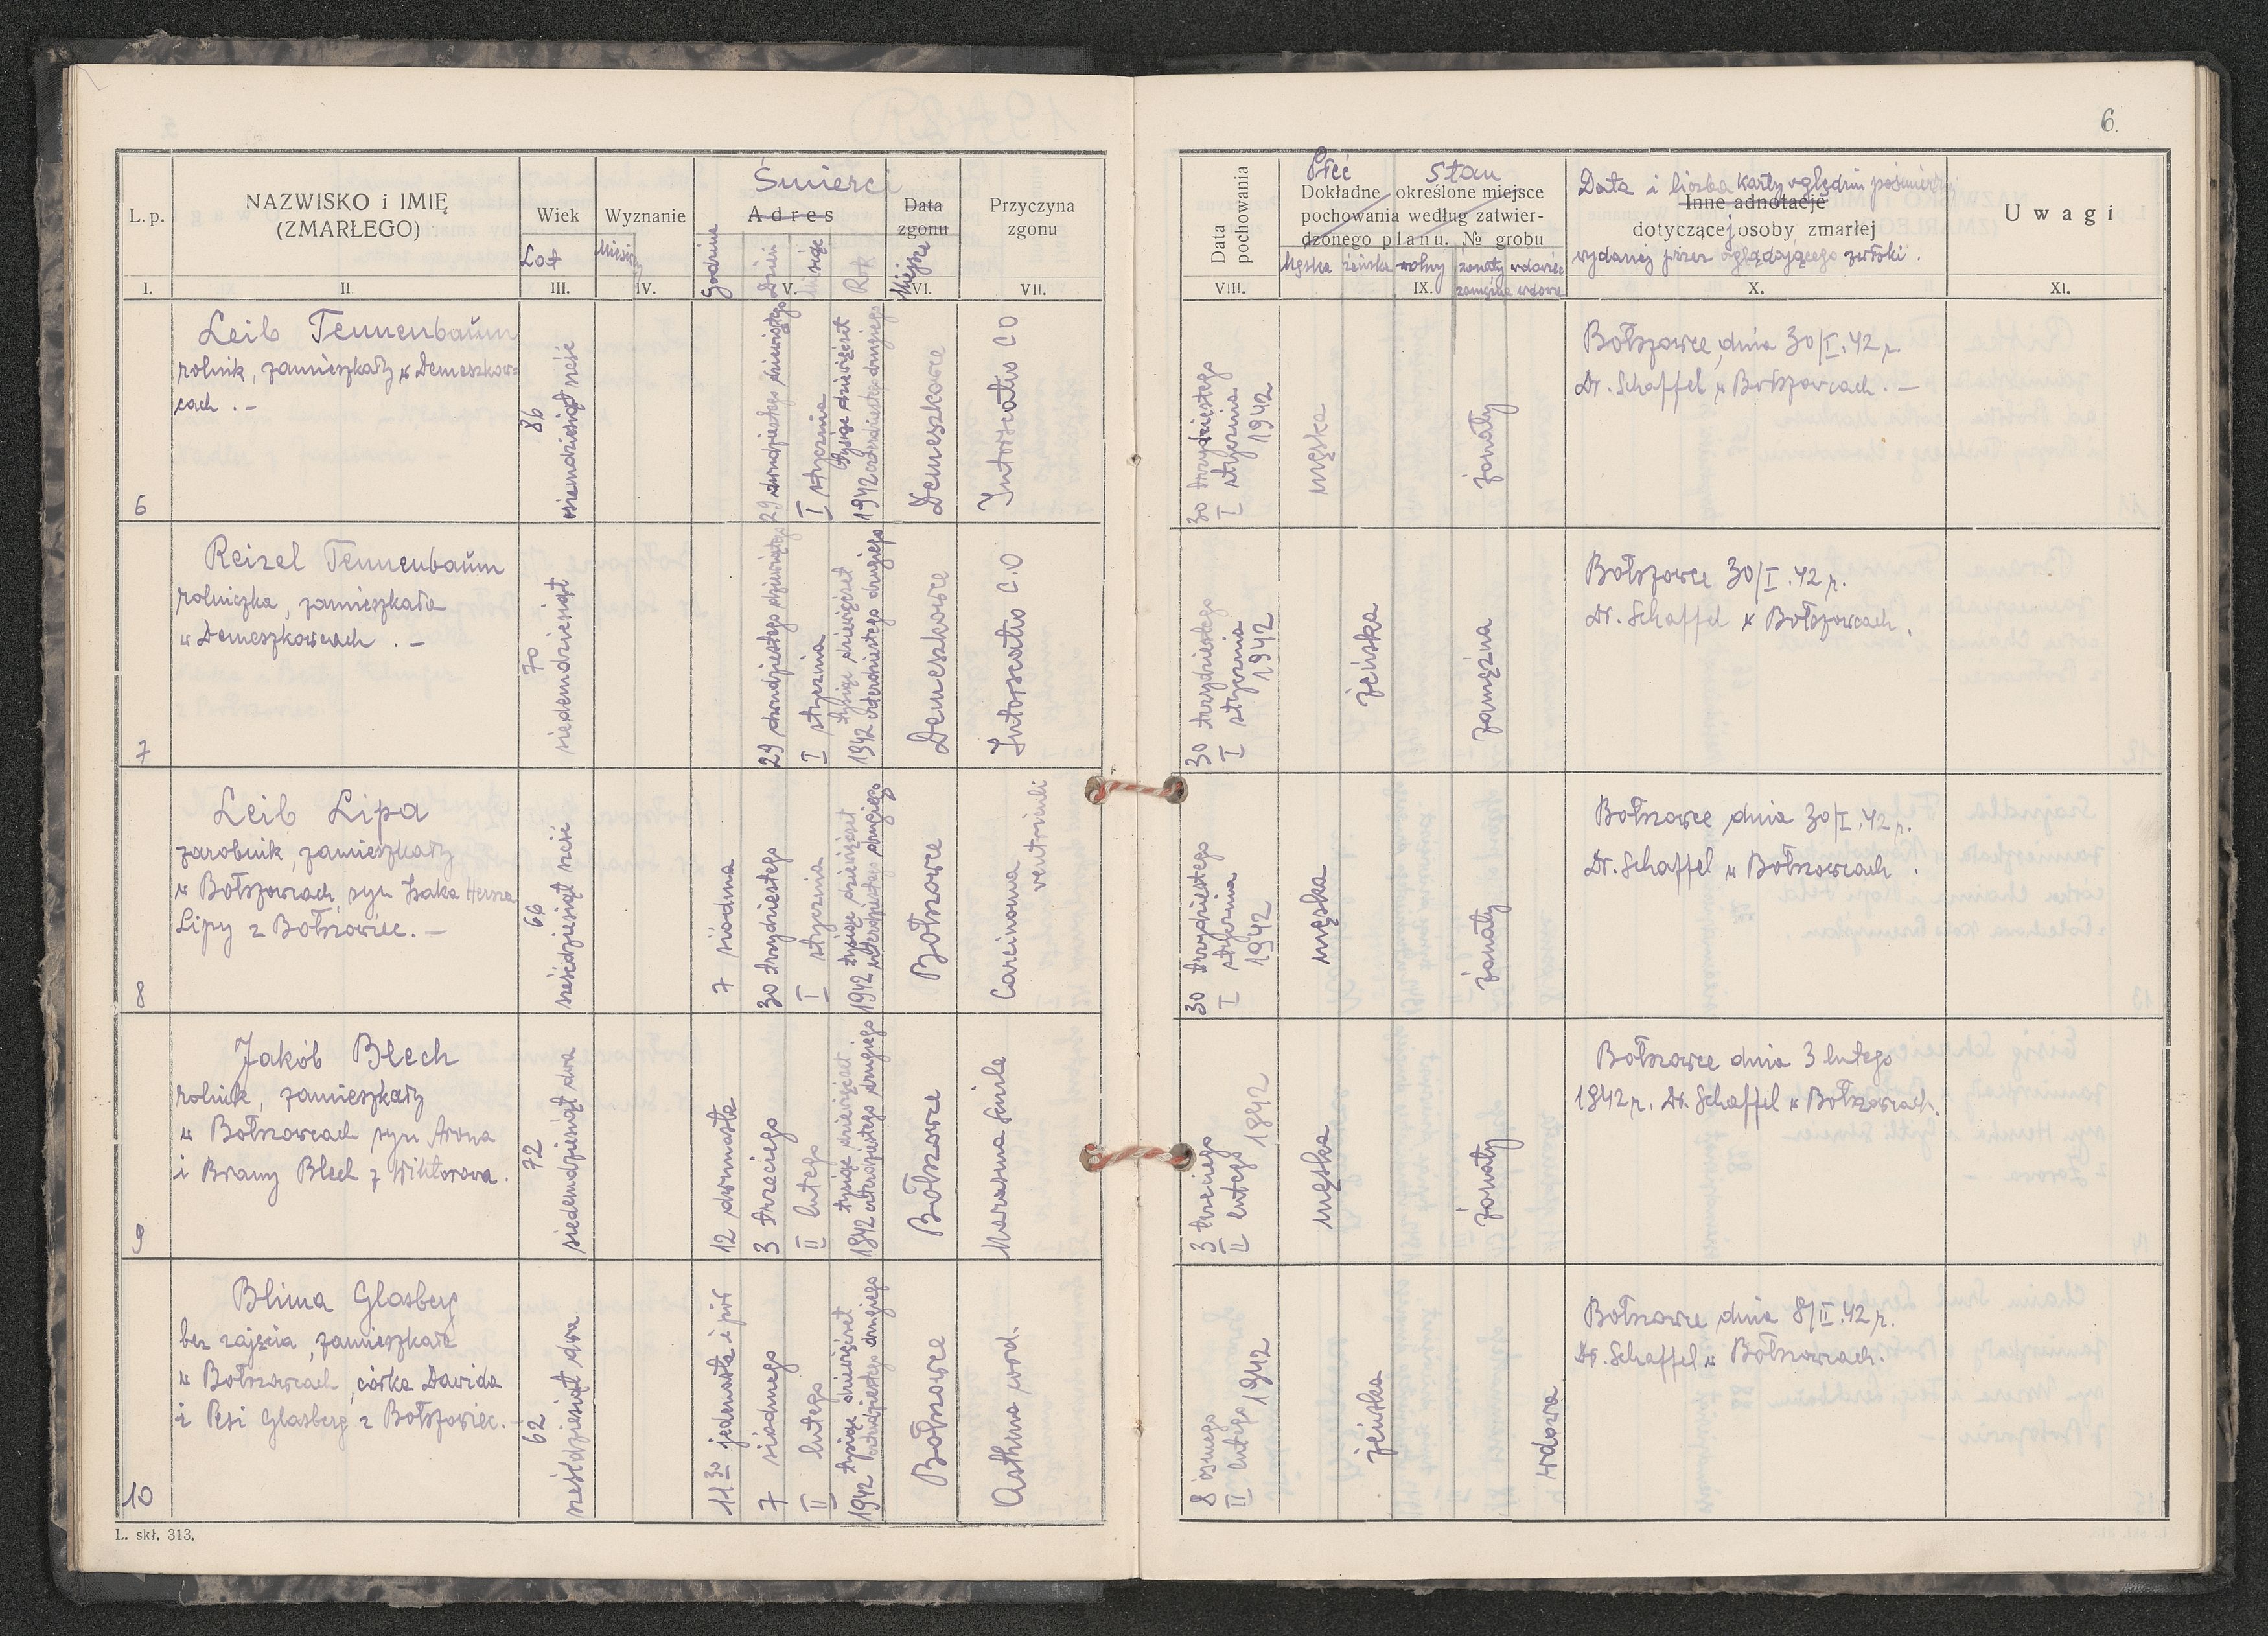 6.
L. p.
NAZWISKO i IMIĘ
(ZMARŁEGO)
Wiek
Lat
Wyznanie
Miesięcy
Śmierci
Adres
Godzina
Dzień
Miesiąc
Rok
Data
zgonu
Miejsce
Przyczyna
zgonu
I.
II.
III.
IV.
V.
VI.
VII.
Data
pochowania
Płeć
Stan
Dokładne określone miejsce
pochowania według zatwier-
dzonego planu. № grobu
Męska
żeńska
wolny
żonaty
zamężna
wdowiec
wdowa
Data i liczba karty oględzin pośmiertnych
Inne adnotacje
dotyczącej osoby zmarłej
wydanej przez oglądającego zwłoki.
Uwagi
VIII.
IX.
X.
XI.
6
Leib Tennenbaum
rolnik, zamieszkały w Demeszkow=
cach . –
86
osiemdziesiąt sześć
29 dwudziestego dziewiątego
I stycznia
tysiąc dziewięćset
1942 czterdziestego drugiego
Demeszkowce
Intoxicatio CO
30 trzydziestego
I stycznia
1942
męska
żonaty
Bołszowce, dnia 30/I.42 r.
Dr. Schaffel w Bołszowcach. –
7
Reizel Tennenbaum
rolniczka, zamieszkała
w Demeszkowcach . –
70
siedemdziesiąt
29 dwudziestego dziewiątego
I stycznia
tysiąc dziewięćset
1942 czterdziestego drugiego
Demeszkowce
Intoxicatio C.O
30 trzydziestego
I stycznia
1942
żeńska
zamężna
Bołszowce 30/I.42 r.
Dr. Schaffel w Bołszowcach.
8
Leib Lipa
zarobnik, zamieszkały
w Bołszowcach, syn Izaka Hersza
Lipy z Bołszowiec. –
66
sześćdziesiąt sześć
7 siódma
30 trzydziestego
I stycznia
tysiąc dziewięćset
1942 czterdziestego drugiego
Bołszowce
Carcinoma
ventriculi
30 trzydziestego
I stycznia
1942
męska
żonaty
Bołszowce dnia 30/I.42 r.
Dr. Schaffel w Bołszowcach.
9
Jakób Blech
rolnik, zamieszkały
w Bołszowcach syn Arona
i Brany Blech z Wiktorowa.
72
siedemdziesiąt dwa
12 dwunasta
3 trzeciego
II lutego
tysiąc dziewięćset
1942 czterdziestego drugiego
Bołszowce
Marasmus senile
3 trzeciego
II lutego
1942
męska
żonaty
Bołszowce dnia 3 lutego
1942 r. Dr. Schaffel w Bołszowcach.
10
Blima Glasberg
bez zajęcia, zamieszkała
w Bołszowcach, córka Dawida
i Pesi Glasberg z Bołszowiec. –
62
sześćdziesiąt dwa
11 30 jedenasta i pół
7 siódmego
II lutego
tysiąc dziewięćset
1942 czterdziestego drugiego
Bołszowce
Asthma cord.
8 ósmego
II lutego
1942
żeńska
wdowa
Bołszowce dnia 8/II.42 r.
Dr. Schaffel w Bołszowcach.
L. skł. 313.